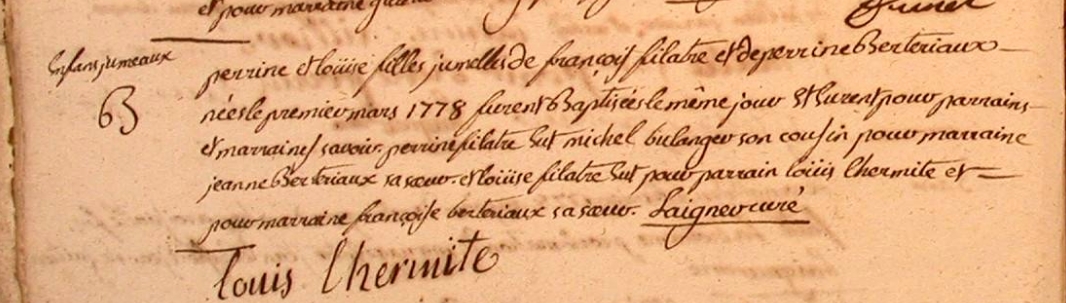 et pour marraine
enfans jumeaux
perrine et loüise filles jumelles de françois filatre et de perrine Berteriaux
B
nées le premier mars 1778 furent Baptisées le même jour et Eurent pour parrains
et marraines savoir perrine filatre Eut michel bulanger son cousin pour marraine
jeanne Berteriaux sa sœur. et loüise filatre Eut pour parrain loüis lhermite et
pour marraine françoise berteriaux sa sœur. Laigneur curé
louis lhermite